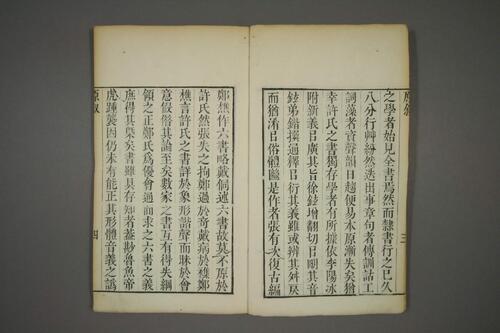 原敘
三
之學者始見全書焉然而隸書行之已久
八分行艸紛然迭出事章句者傳訓詁工
詞藻者資聲韻日趨便易本原漸失矣猶
幸許氏之書獨存學者有所據依李陽冰
附新義㠯廣其旨徐鉉增翻切㠯明其音
鉉弟鍇撰通釋㠯衍其義雖或辨其舛戾
而猶㠯俗體繇是作者張有次復古編
鄭樵作六書略戴侗述六書故莫不原於
許氏然張失之拘鄭過於奇戴病於鄭
樵言許氏之書詳於象形諧聲而昧於會
意假借其論至矣數家之書互有得失綱
領之正鄭氏爲優會通而求之六書之義
庶得其槩矣書雖具存知者葢尠魯魚帝
虎踵襲因仍未有能正其形體音義之譌
原敘
四